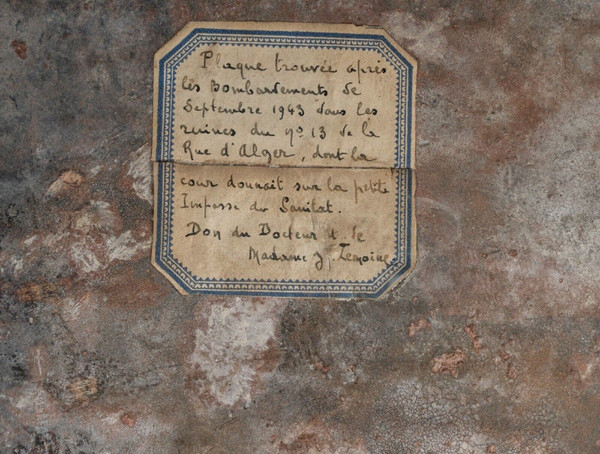 Plaque trouvée après
les Bombardements de
Septembre 1943 dans les
ruines du nº 13 de la
Rue d'Alger, dont la
cour donnait sur la petite
Impasse du Sanitat.
Don du Docteur & de
Madame J. Lemoine